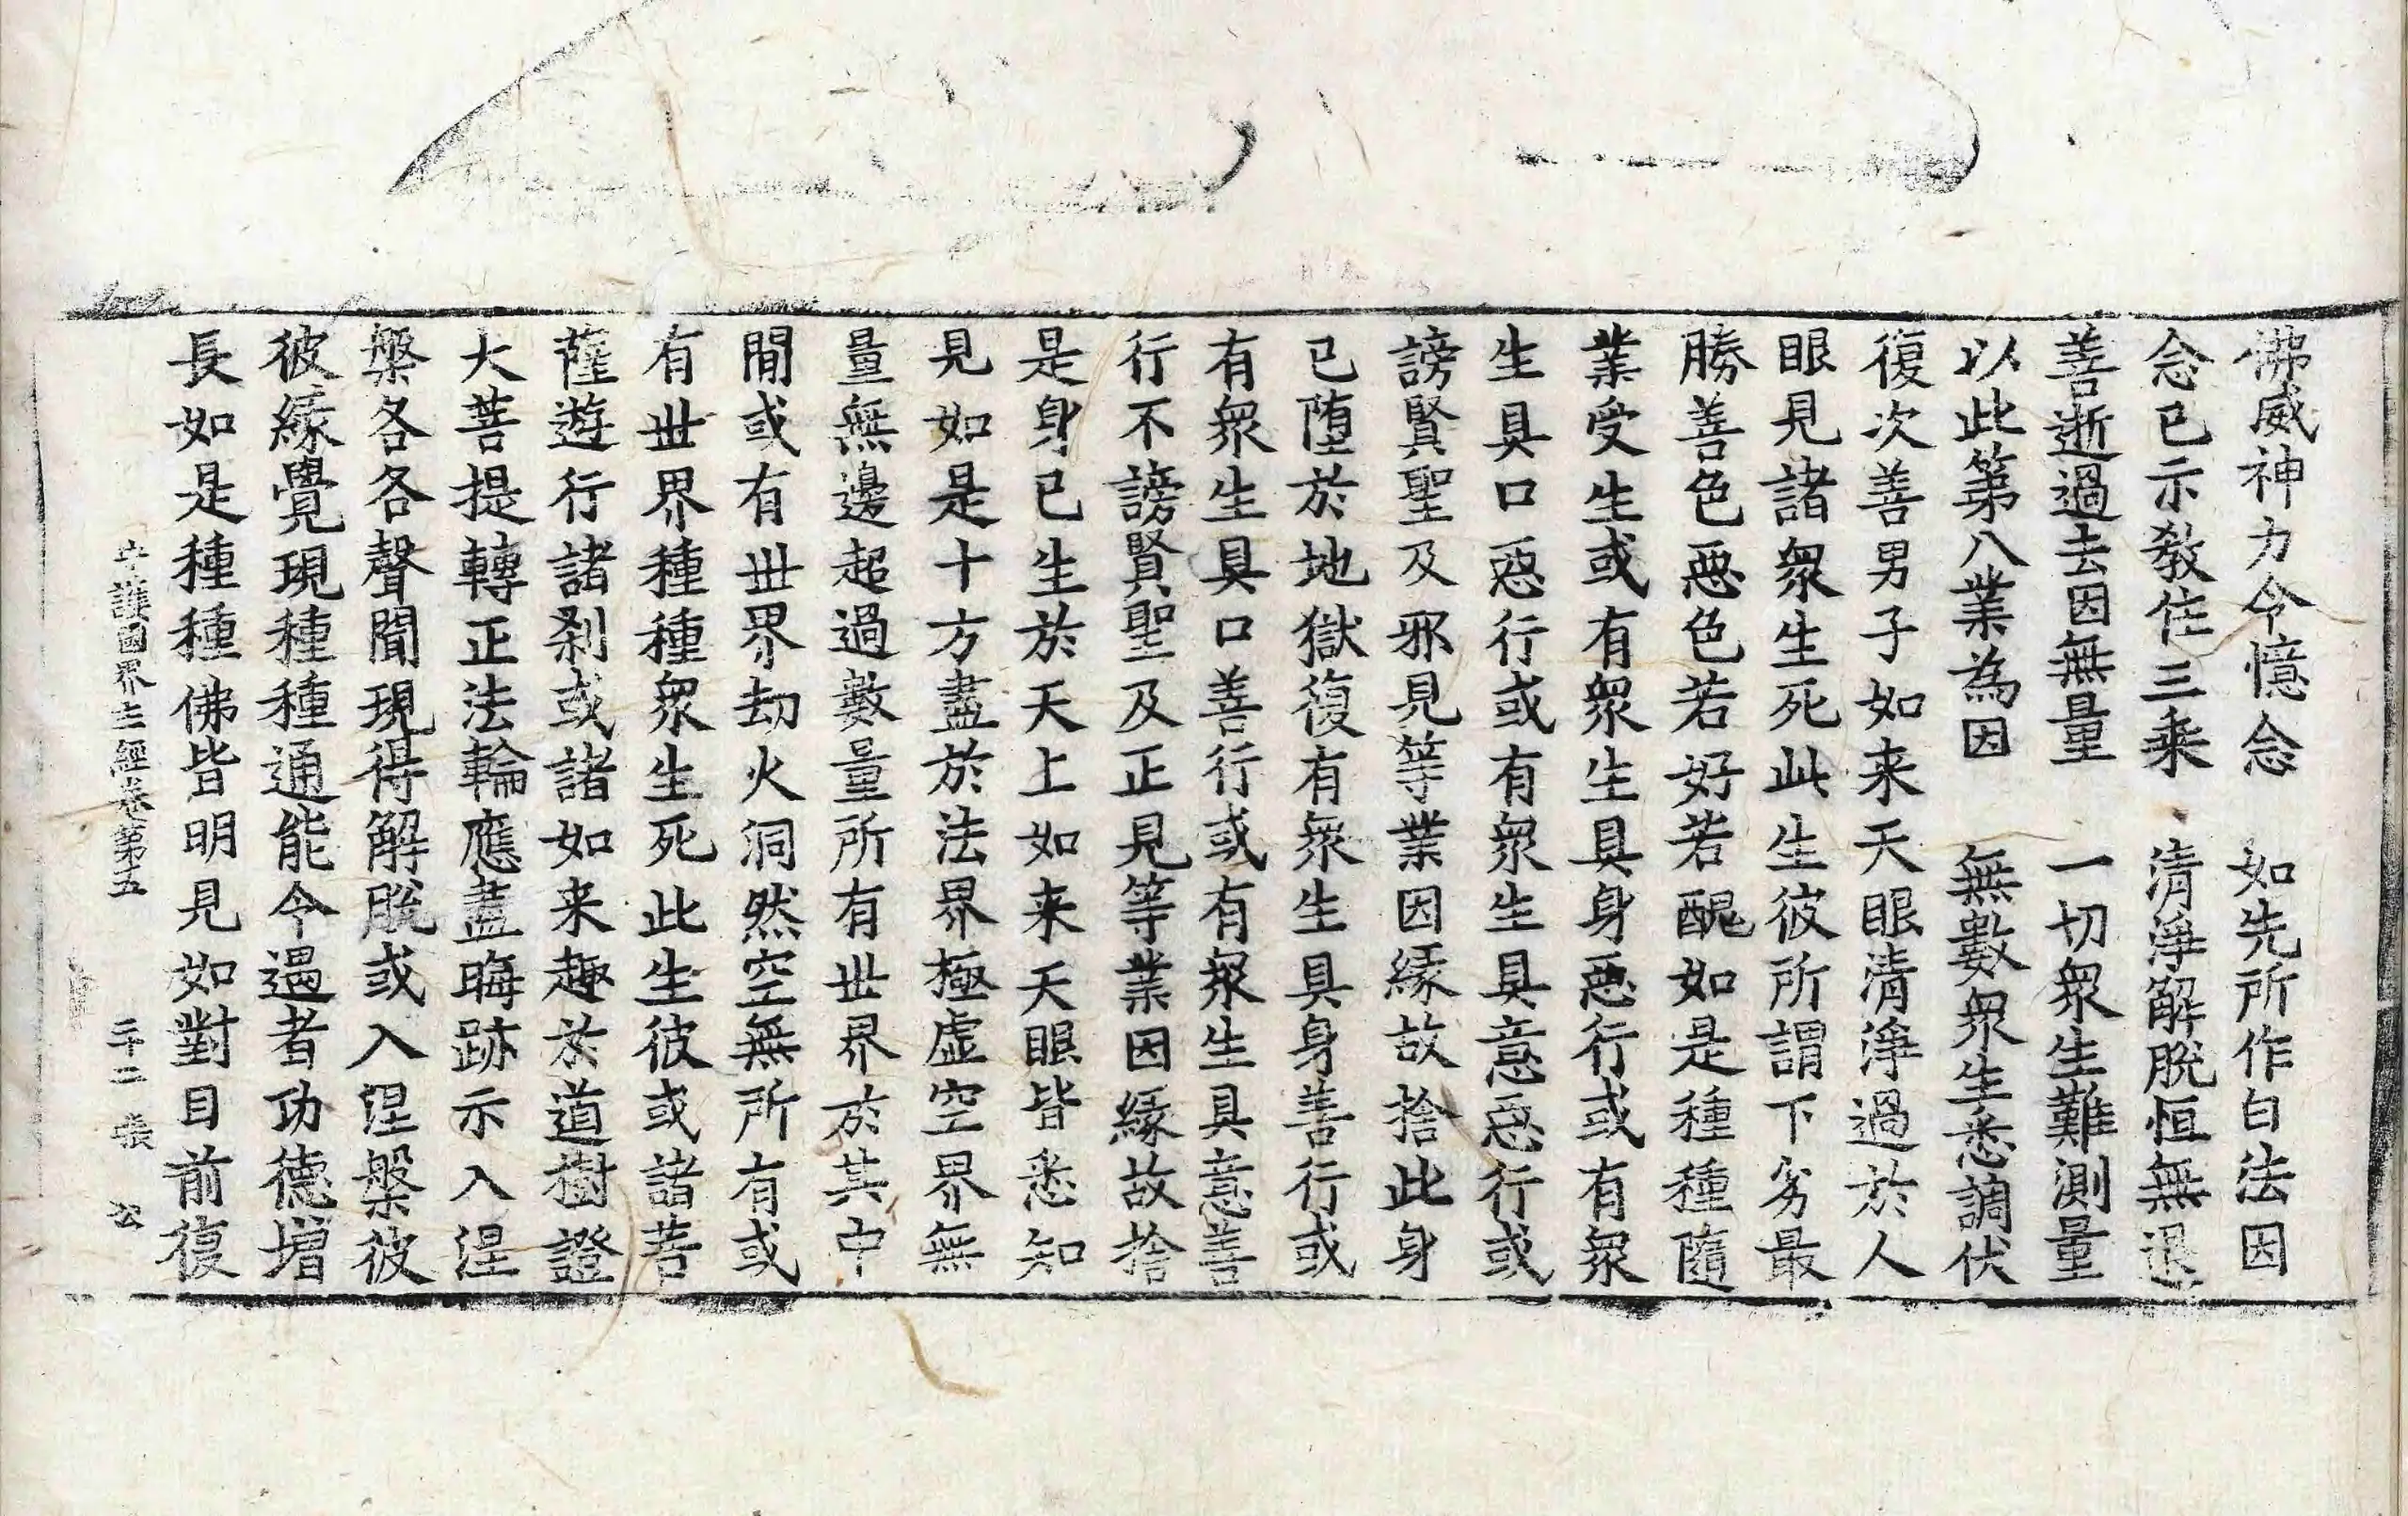 佛威神力令憶念　如先所作白法因
念已示教住三乘　清淨解脫恒無退
善逝過去因無量　一切衆生難測量
以此第八業為因　無數衆生悉調伏
復次善男子如来天眼清淨過於人
眼見諸衆生死此生彼所謂下劣最
勝善色惡色若好若醜如是種種隨
業受生或有衆生具身惡行或有衆
生具口惡行或有衆生具意惡行或
謗賢聖及邪見等業因緣故捨此身
已墮於地獄復有衆生具身善行或
有衆生具口善行或有衆生具意善
行不謗賢聖及正見等業因緣故捨
是身已生於天上如来天眼皆悉知
見如是十方盡於法界極虛空界無
量無邊超過數量所有世界於其中
間或有世界劫火洞然空無所有或
有世界種種衆生死此生彼或諸菩
薩遊行諸刹或諸如来趣於道樹證
大菩提轉正法輪應盡晦跡示入涅
槃各各聲聞現得解脫或入涅槃彼
彼緣覺現種種通能令遇者功德增
長如是種種佛皆明見如對目前復
守護國界主經卷第五　二十二張　公